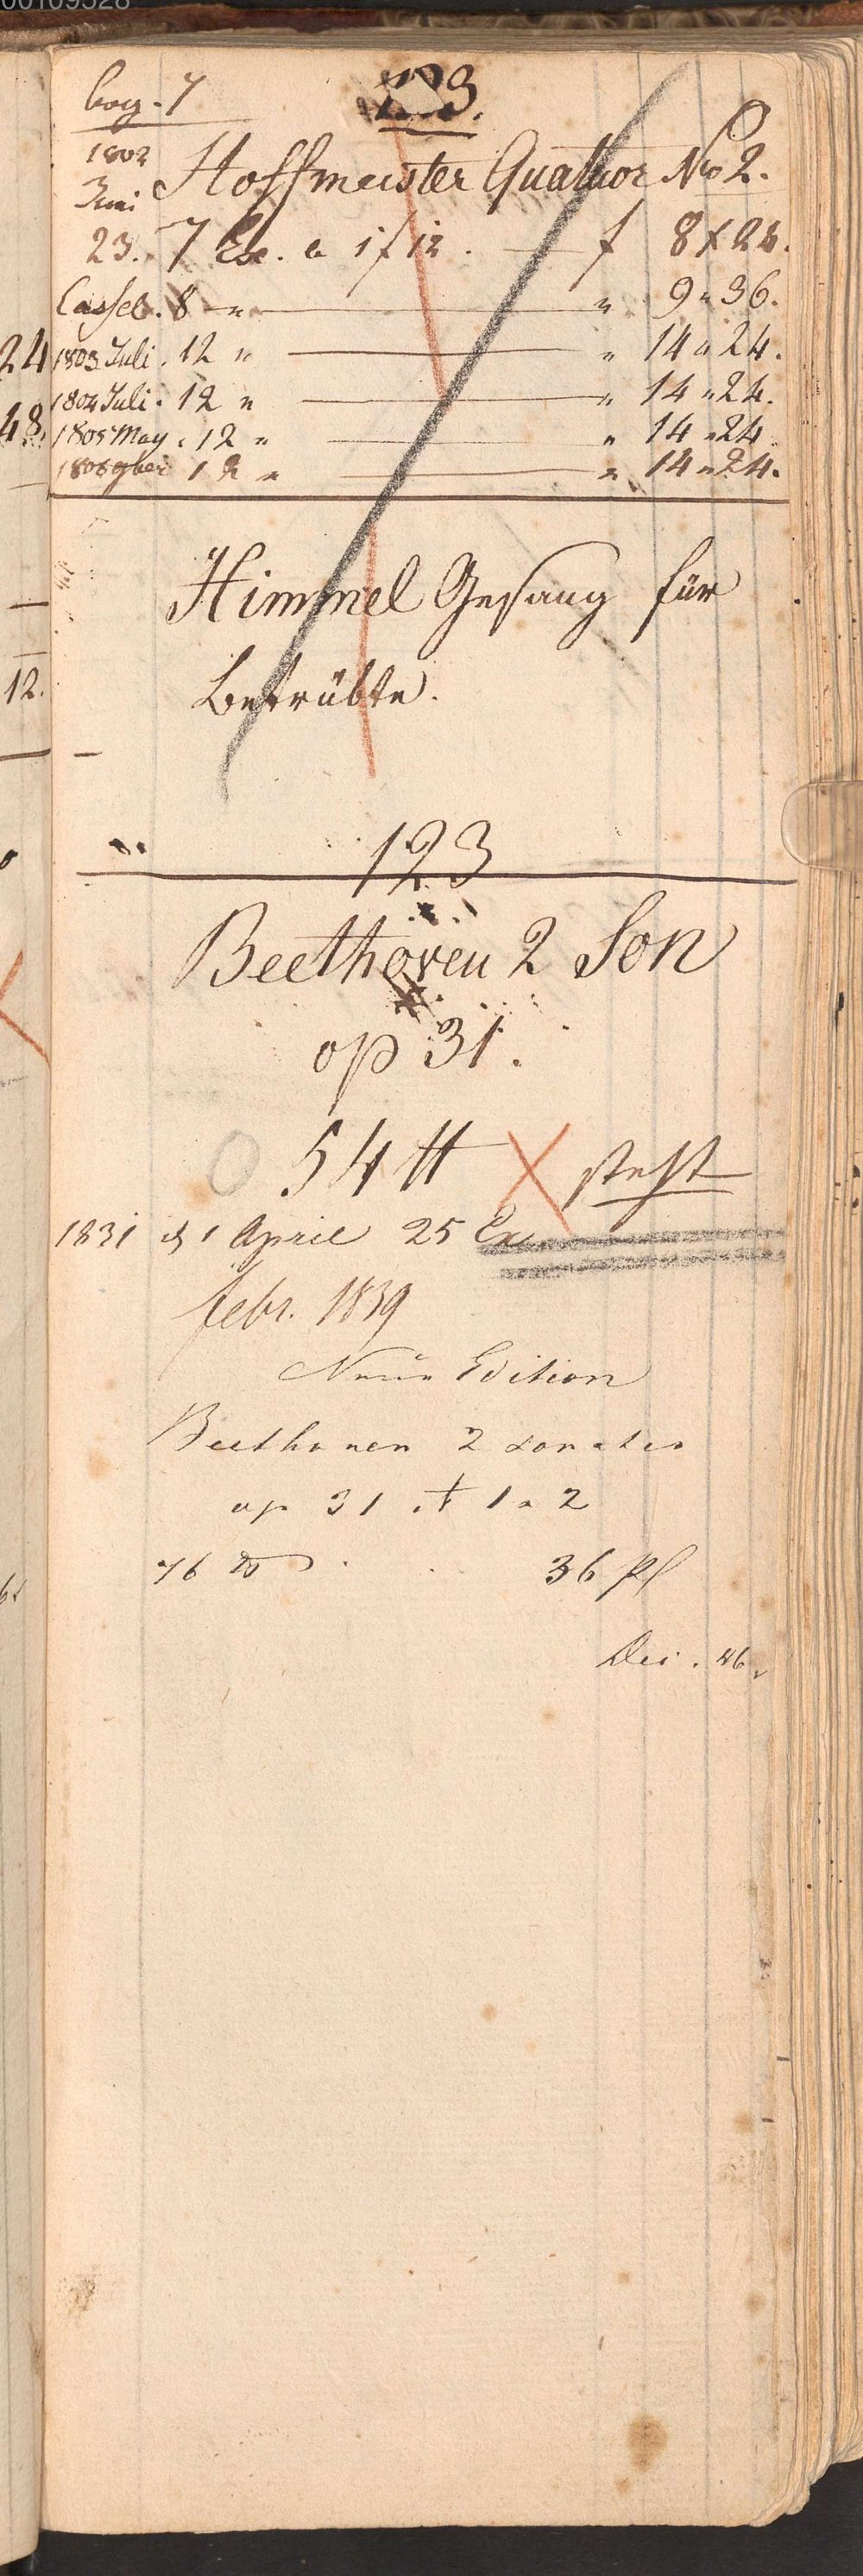 00109528
bog. 7
123.
1802
Juni
Hoffmeister Quatuor No 2.
23. 7 Ex. a 1 f 12. — f 8 x 24.
Cassel. 8 " — " 9 " 36.
1803 Juli. 12 " — " 14 " 24.
1804 Juli. 12 " — " 14 " 24.
1805 May. 12 " — " 14 " 24.
1806 9ber 12 " — " 14 " 24.
Himmel Gesang für
Betrübte.
123
Beethoven 2 Son
op 31.
54 # steht
1831 d 1 April 25 Ex
febr. 1839
Neue Edition
Beethoven 2 Sonates
op 31 1 a 2
76 36 Pl
24
48
12.